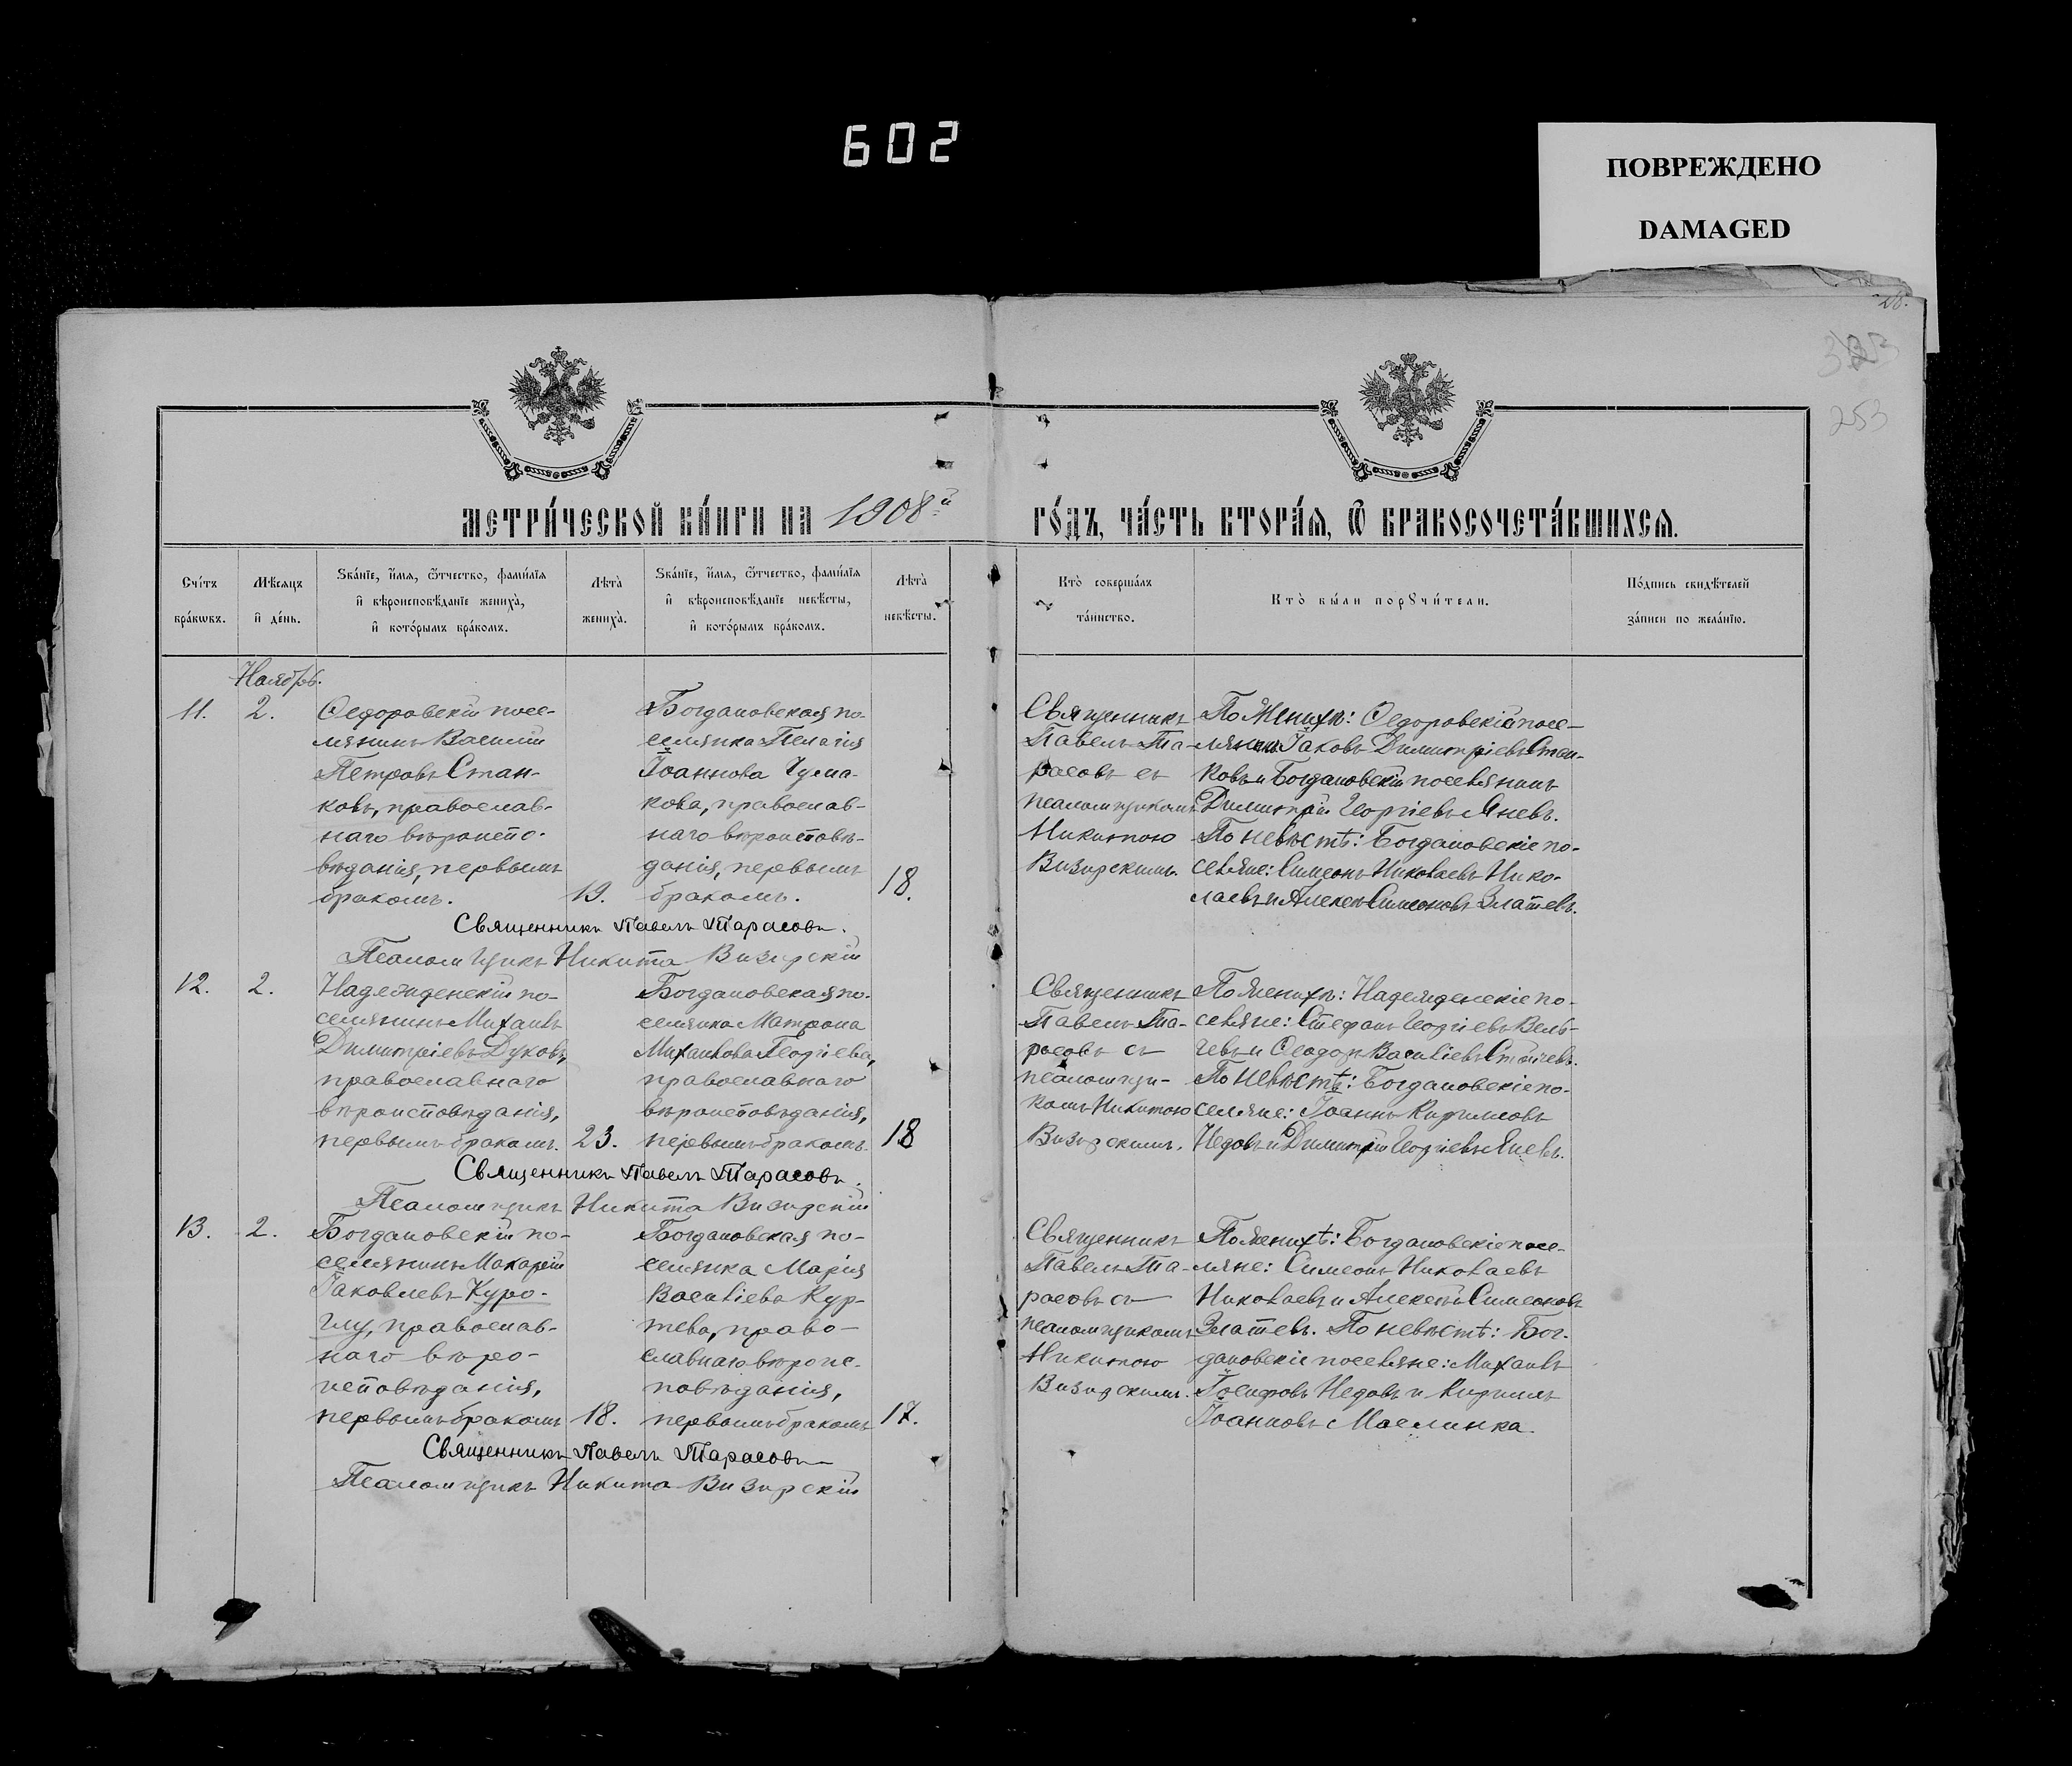 602
ПОВРЕЖДЕНО
DAMAGED
253
МЕТРИ́ЧЕСКОЙ КНИ́ГИ НА 1908й ГО́ДЪ, ЧА́СТЬ ВТОРА́Я, Ѡ БРАКОСОЧЕТА́ВШИХСЯ.
Сче́тъ бра́кѡвъ.
Мѣ́сяцъ и҆ де́нь.
Ѕва́нїе, и҆́мя, ѻ҆́тчество, фами́лїя
и҆ вѣроисповѣ́данїе жениха̀,
и҆ кото́рымъ бра́комъ.
Лѣта̀ жениха̀.
Ѕва́нїе, и҆́мя, ѻ҆́тчество, фами́лїя
и҆ вѣроисповѣ́данїе невѣ́сты,
и҆ кото́рымъ бра́комъ.
Лѣта̀ невѣ́сты.
Кто̀ соверша́лъ та́инство.
Кто̀ бы́ли порꙋчи́тели.
По́дпись свидѣ́телей за́писи по жела́нїю.
Ноябрь.
11. 2.
Ѳедоровскій посе-
лянинъ Василій
Петровъ Стан-
ковъ, православ-
наго вѣроиспо-
вѣданія, первымъ
бракомъ. 19.
Богдановская по-
селянка Пелагія
Іоаннова Чума-
кова, православ-
наго вѣроисповѣ-
данія, первымъ
бракомъ. 18.
Священникъ
Павелъ Та-
расовъ съ
псаломщикомъ
Никитою
Визирскимъ.
По женихѣ: Ѳедоровскій посе-
лянинъ Іаковъ Димитріевъ Стан-
ковъ и Богдановскій поселянинъ
Димитрій Георгіевъ Яневъ.
По невѣстѣ: Богдановскіе по-
селяне: Симеонъ Николаевъ Нико-
лаевъ и Алексѣй Симеоновъ Златевъ.
Священникъ Павелъ Тарасовъ.
Псаломщикъ Никита Визирскій
12. 2.
Надежденскій по-
селянинъ Михаилъ
Димитріевъ Дуковъ,
православнаго
вѣроисповѣданія,
первымъ бракомъ. 23.
Богдановская по-
селянка Матрона
Михаилова Георгіева,
православнаго
вѣроисповѣданія,
первымъ бракомъ. 18
Священникъ
Павелъ Та-
расовъ съ
псаломщи-
комъ Никитою
Визирскимъ.
По женихѣ: Надежденскіе по-
селяне: Стефанъ Георгіевъ Вель-
чевъ и Ѳеодоръ Василіевъ
По невѣстѣ: Богдановскіе по-
селяне: Іоаннъ Кирилловъ
Недовъ и Димитрій Георгіевъ Яневъ.
Священникъ Павелъ Тарасовъ.
Псаломщикъ Никита Визирскій
13. 2.
Богдановскій по-
селянинъ Макарій
Іаковлевъ Куро-
глу, православ-
наго вѣро-
исповѣданія,
первымъ бракомъ 18.
Богдановская по-
селянка Марія
Василіева Кур-
тева, право-
славнаго вѣроис-
повѣданія,
первымъ бракомъ 17.
Священникъ
Павелъ Та-
расовъ съ
псаломщикомъ
Никитою
Визирскимъ.
По женихѣ: Богдановскіе посе-
ляне: Симеонъ Николаевъ
Николаевъ и Алексѣй Симеоновъ
Златевъ. По невѣстѣ: Бог-
дановскіе поселяне: Михаилъ
Іосифовъ Недовъ и Кириллъ
Іоанновъ Маслинка.
Священникъ Павелъ Тарасовъ
Псаломщикъ Никита Визирскій